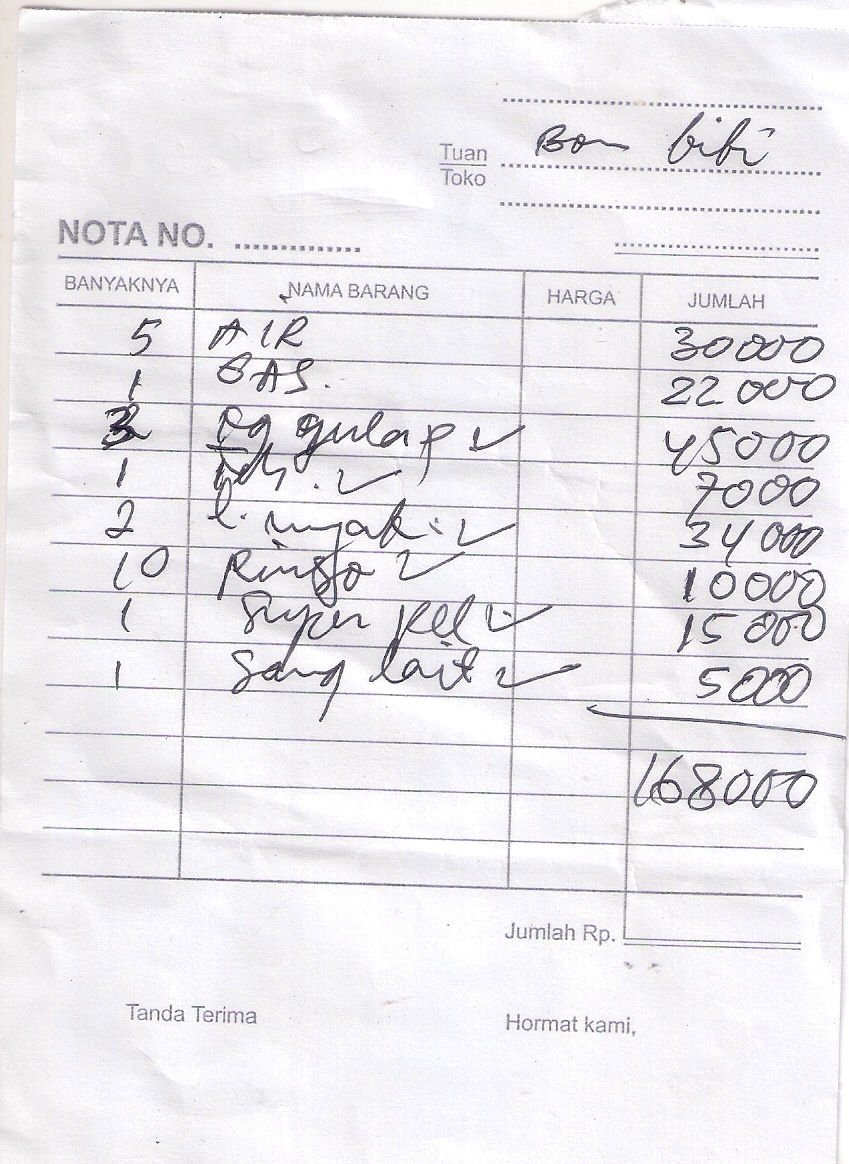 Tuan Bon bibi
Toko
NOTA NO. .............
BANYAKNYA NAMA BARANG HARGA JUMLAH
5 AIR 30000
1 GAS. 22000
3 kg gula p 45000
1 7000
2 l. myak 34000
10 Rinso 10000
1 Super pel 15000
1 Sang lait 5000
168000
Jumlah Rp.
Tanda Terima Hormat kami,